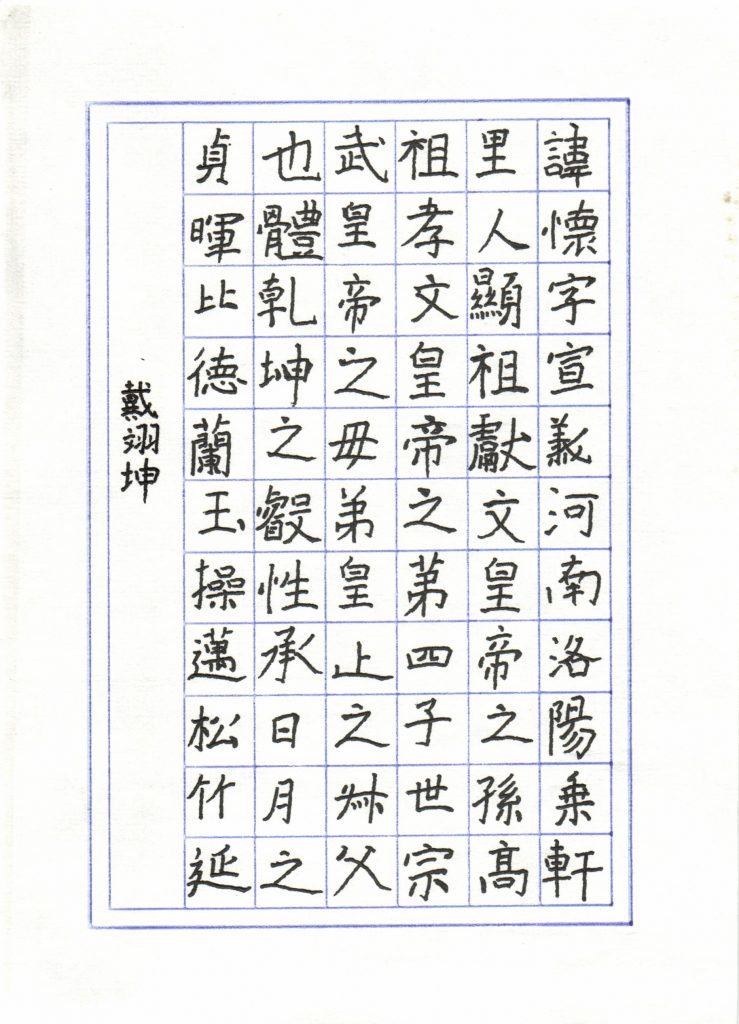 諱懷字宣義河南洛陽乗軒
里人顯祖獻文皇帝之孫高
祖孝文皇帝之苐四子世宗
武皇帝之母弟皇止之叔父
也體乾坤之叡性承日月之
貞暉比德蘭玉操邁松竹延
戴翊坤